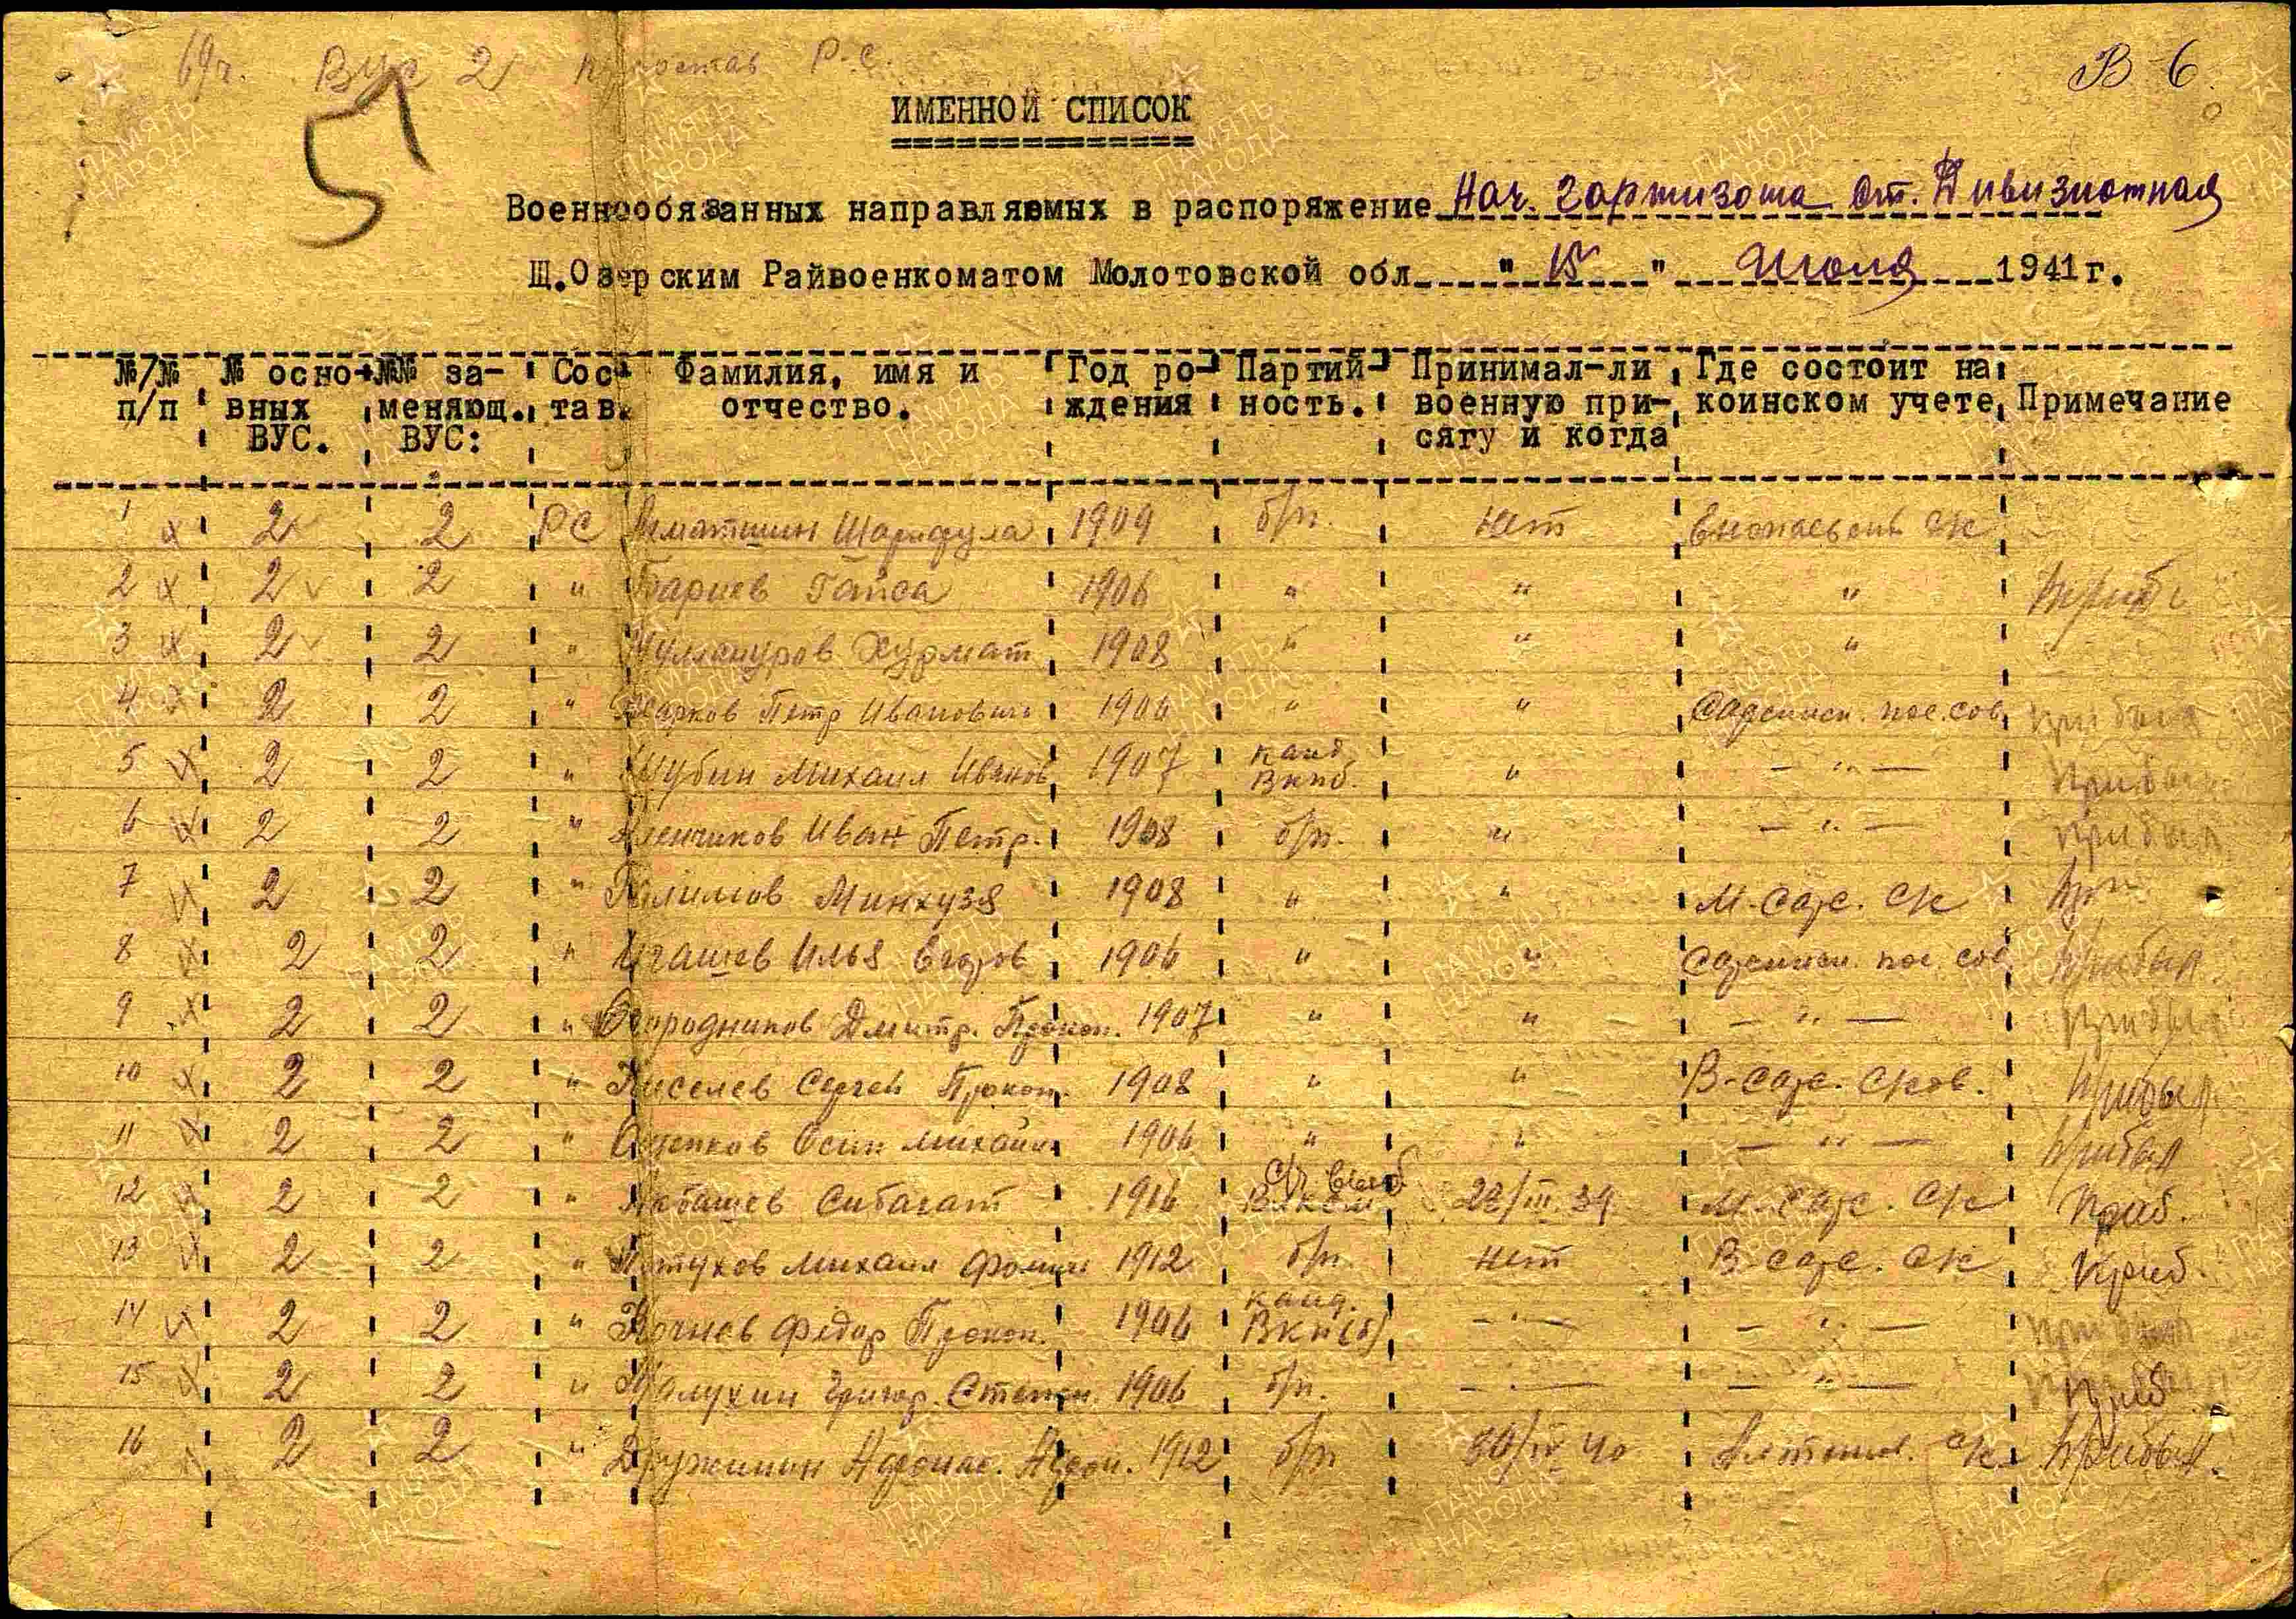 В-6
5
ИМЕННОЙ СПИСОК
Военнообязанных направляемых в распоряжение Нач. гарнизона ст. Дивизионная
Щ.Озерским Райвоенкоматом Молотовской обл "15" Июля 1941г.
№/№ п/п № основных ВУС. №№ заменяющ. ВУС: Состав. Фамилия, имя и отчество. Год рождения Партийность. Принимал-ли военную присягу и когда Где состоит на коинском учете Примечание
1 2 2 РС Шарифула 1909 б/п. нет с/с
2 2 2 " Бариев Гайса 1906 " " " Приб
3 2 2 " Хурмат 1908 " " "
4 2 2 " Жарков Петр Иванович 1906 " " Сарсинск. пос. сов. прибыл
5 2 2 " Шубин Михаил Иванов 1907 канд. Вкпб. " — " — Прибыл
6 2 2 " Иван Петр. 1908 б/п. " — " — прибыл
7 2 2 " Галимов Минхузя 1908 " " М-Сарс. с/с
8 2 2 " Игашев Илья Егоров 1906 " " Сарсинск. пос. сов Прибыл
9 2 2 " Огородников Дмитр. Прокоп. 1907 " " — " — Прибыл
10 2 2 " Киселев Сергей Прокоп. 1908 " " В-Сарс. с/сов. Прибыл
11 2 2 " Осип Михайл. 1906 " " — " — Прибыл
12 2 2 " Сибагат 1916 Влксм М-Сарс. с/с Приб.
13 2 2 " Петухов Михаил Фомич 1912 б/п нет В-Сарс. с/с Приб.
14 2 2 " Кочнев Федор Прокоп. 1906 канд. Вкп(б) — " — — " — прибыл
15 2 2 " Григор. Степан. 1906 б/п. — " — — " — Приб
16 2 2 " Дружинин Афонас. Афон. 1912 б/п 30/IV 40 с/с Прибыл.